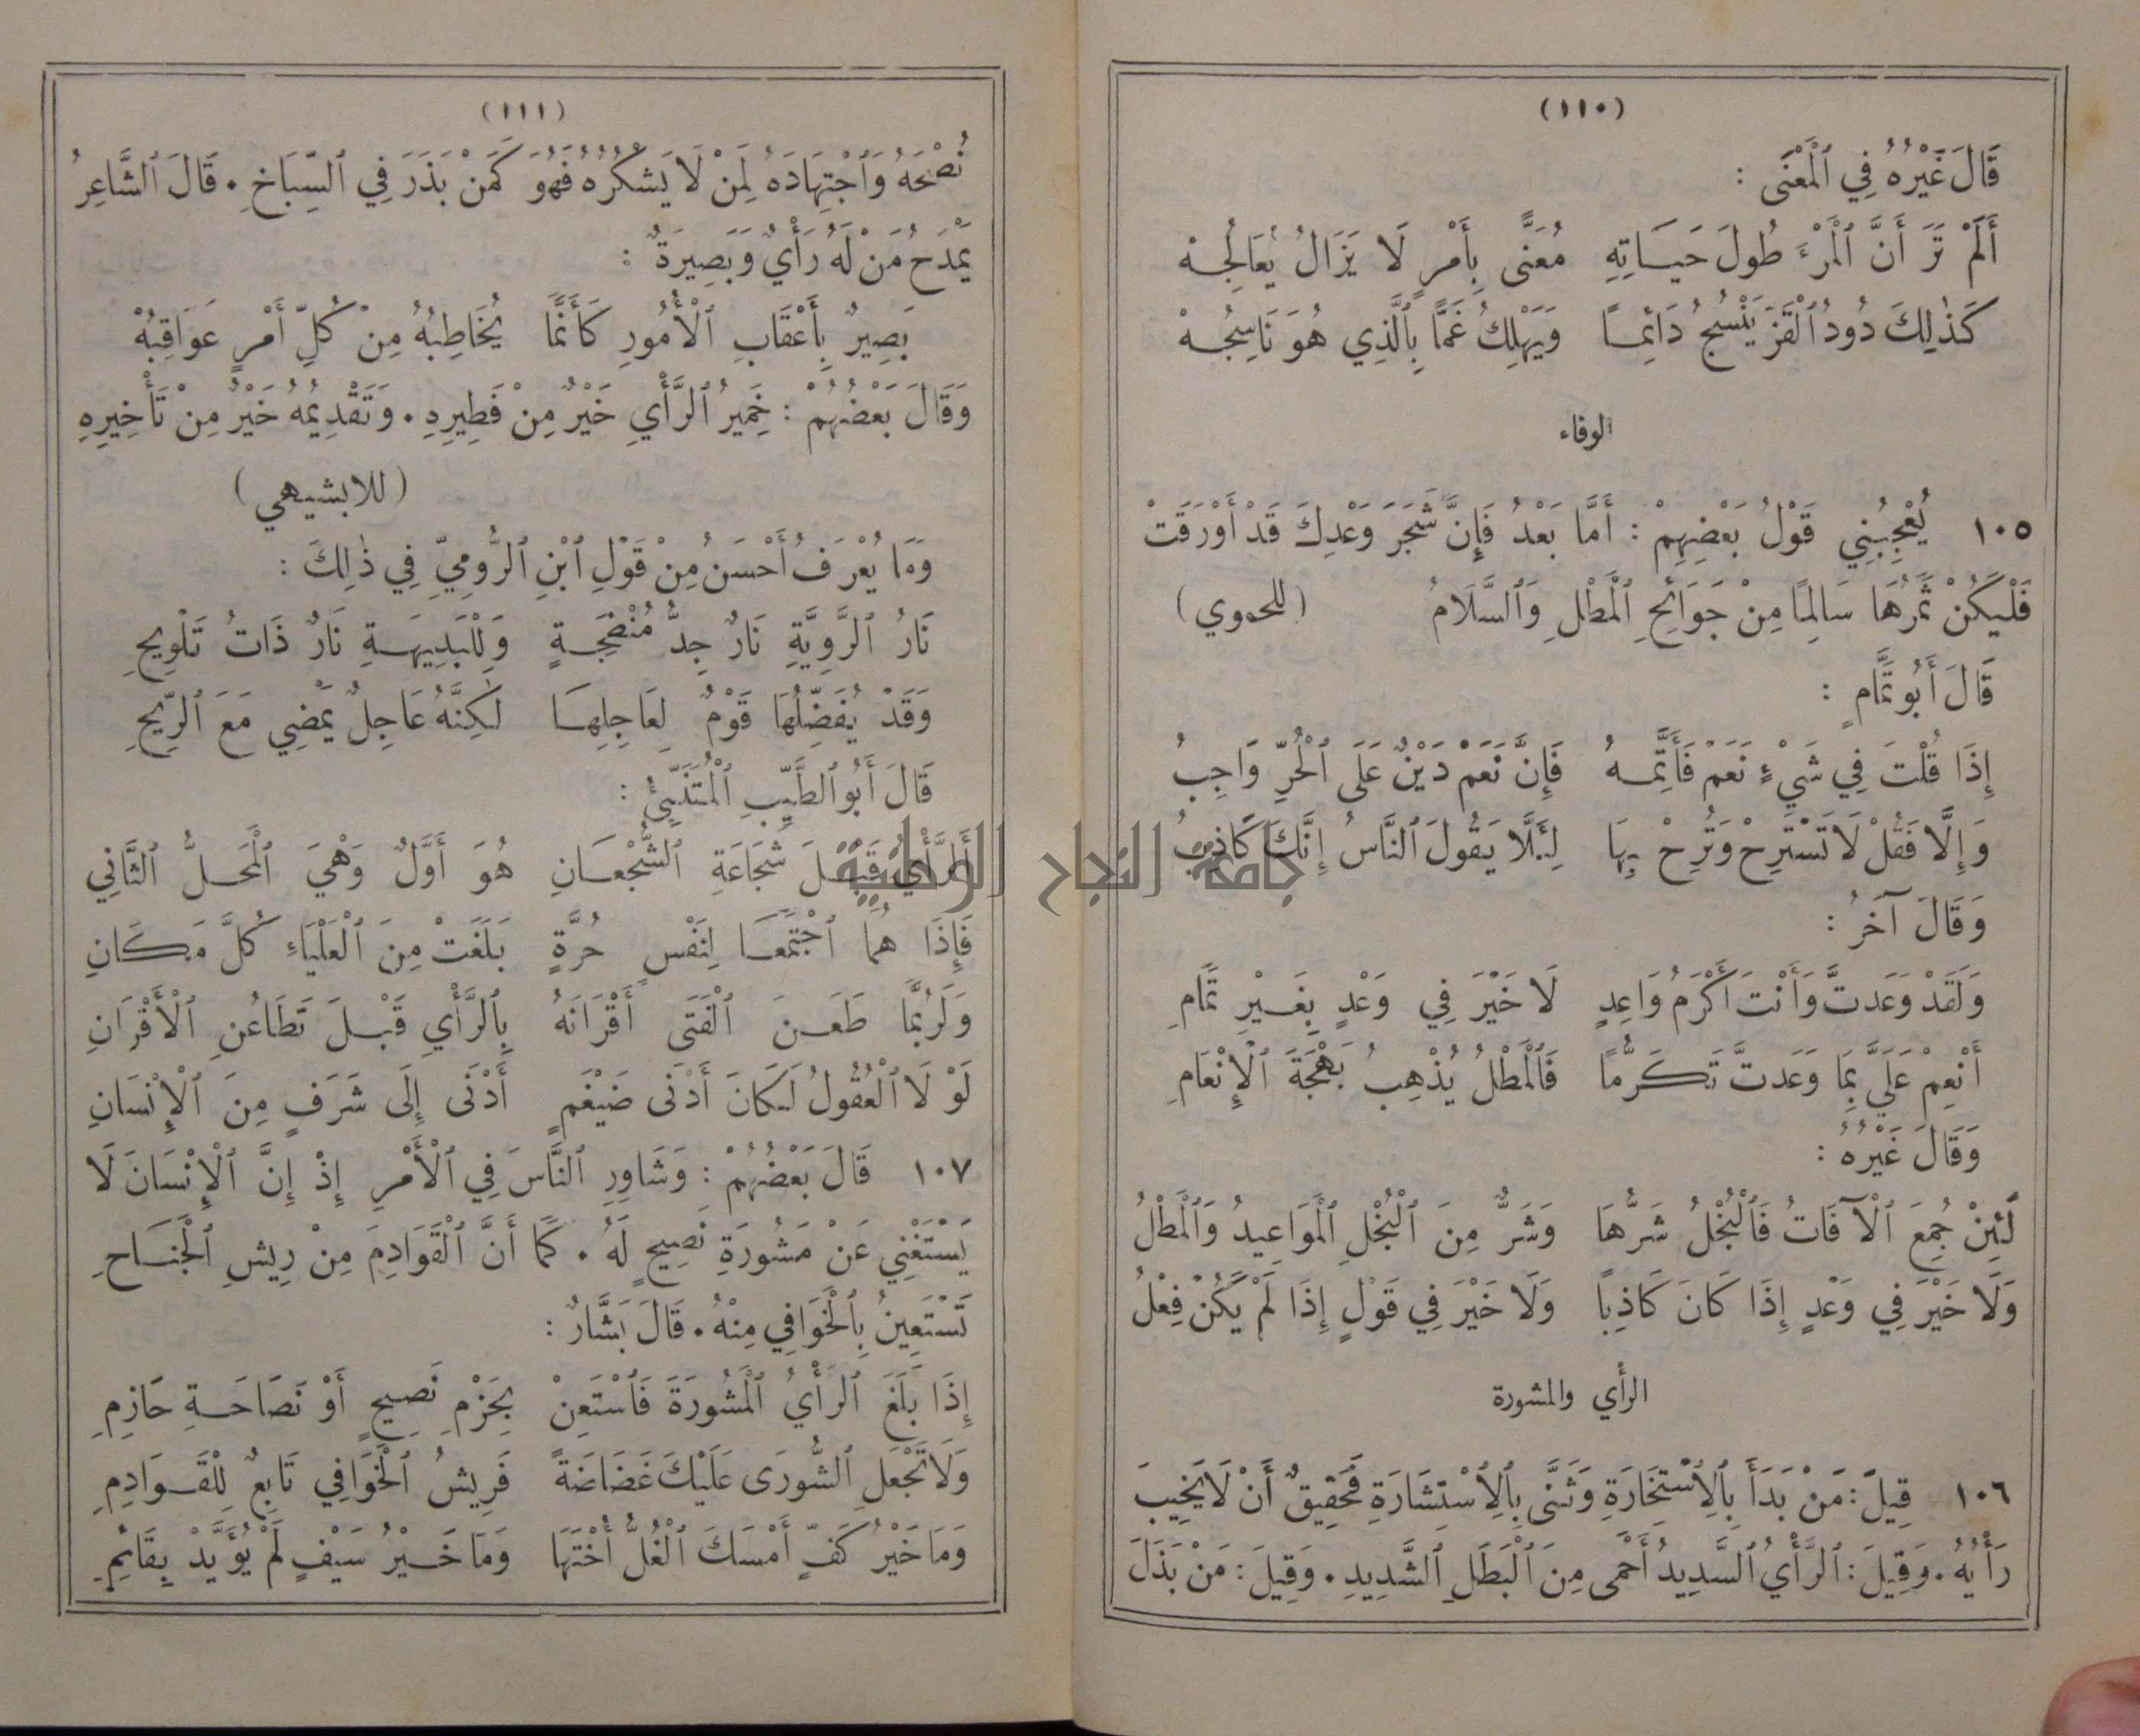 (١١٠)
قَالَ غَيْرُهُ فِي ٱلْمَعْنَى :
أَلَمْ تَرَ أَنَّ ٱلْمَرْءَ طُولَ حَيَاتِهِ مُعَنًّى بِأَمْرٍ لَا يَزَالُ يُعَالِجُهْ
كَذٰلِكَ دُودُ ٱلْقَزِّ يَنْسُجُ دَائِمًا وَيَهْلِكُ غَمًّا بِٱلَّذِي هُوَ نَاسِجُهْ
الوفاء
١٠٥ يُعْجِبُنِي قَوْلُ بَعْضِهِمْ : أَمَّا بَعْدُ فَإِنَّ شَجَرَ وَعْدِكَ قَدْ أَوْرَقَتْ
فَلْيَكُنْ ثَمَرُهَا سَالِمًا مِنْ جَوَائِحِ ٱلْمَطْلِ وَٱلسَّلَامُ (للحموي)
قَالَ أَبُو تَمَّامٍ :
إِذَا قُلْتَ فِي شَيْءٍ نَعَمْ فَأَتِمَّهُ فَإِنَّ نَعَمْ دَيْنٌ عَلَى ٱلْحُرِّ وَاجِبُ
وَإِلَّا فَقُلْ لَا تَسْتَرِحْ وَتُرِحْ بِهَا لِئَلَّا يَقُولَ ٱلنَّاسُ إِنَّكَ كَاذِبُ
وَقَالَ آخَرُ :
وَلَقَدْ وَعَدتَّ وَأَنْتَ أَكْرَمُ وَاعِدٍ لَا خَيْرَ فِي وَعْدٍ بِغَيْرِ تَمَامِ
أَنْعِمْ عَلَيَّ بِمَا وَعَدتَّ تَكَرُّمًا فَٱلْمَطْلُ يُذْهِبُ بَهْجَةَ ٱلْإِنْعَامِ
وَقَالَ غَيْرُهُ :
لَئِنْ جُمِعَ ٱلْآفَاتُ فَٱلْبُخْلُ شَرُّهَا وَشَرٌّ مِنَ ٱلْبُخْلِ ٱلْمَوَاعِيدُ وَٱلْمَطْلُ
وَلَا خَيْرَ فِي وَعْدٍ إِذَا كَانَ كَاذِبًا وَلَا خَيْرَ فِي قَوْلٍ إِذَا لَمْ يَكُنْ فِعْلُ
الرأي والمشورة
١٠٦ قِيلَ : مَنْ بَدَأَ بِٱلِٱسْتِخَارَةِ وَثَنَّى بِٱلِٱسْتِشَارَةِ فَحَقِيقٌ أَنْ لَا يَخِيبَ
رَأْيُهُ . وَقِيلَ : ٱلرَّأْيُ ٱلسَّدِيدُ أَحْمَى مِنَ ٱلْبَطَلِ ٱلشَّدِيدِ . وَقِيلَ : مَنْ بَذَلَ
(١١١)
نُصْحَهُ وَٱجْتِهَادَهُ لِمَنْ لَا يَشْكُرُهُ فَهُوَ كَمَنْ بَذَرَ فِي ٱلسِّبَاخِ . قَالَ ٱلشَّاعِرُ
يَمْدَحُ مَنْ لَهُ رَأْيٌ وَبَصِيرَةٌ :
بَصِيرٌ بِأَعْقَابِ ٱلْأُمُورِ كَأَنَّمَا يُخَاطِبُهُ مِنْ كُلِّ أَمْرٍ عَوَاقِبُهْ
وَقَالَ بَعْضُهُمْ : خَمِيرُ ٱلرَّأْيِ خَيْرٌ مِنْ فَطِيرِهِ . وَتَقْدِيمُهُ خَيْرٌ مِنْ تَأْخِيرِهِ
(للابشيهي)
وَمَا يُعْرَفُ أَحْسَنُ مِنْ قَوْلِ ٱبْنِ ٱلرُّومِيِّ فِي ذٰلِكَ :
نَارُ ٱلرَّوِيَّةِ نَارٌ جِدُّ مُنْضِجَةٍ وَلِلْبَدِيهَةِ نَارٌ ذَاتُ تَلْوِيحِ
وَقَدْ يُفَضِّلُهَا قَوْمٌ لِعَاجِلِهَا لٰكِنَّهُ عَاجِلٌ يَمْضِي مَعَ ٱلرِّيحِ
قَالَ أَبُو ٱلطَّيِّبِ ٱلْمُتَنَبِّئُ :
أَلرَّأْيُ قَبْلَ شَجَاعَةِ ٱلشُّجْعَانِ هُوَ أَوَّلٌ وَهْيَ ٱلْمَحَلُّ ٱلثَّانِي
فَإِذَا هُمَا ٱجْتَمَعَا لِنَفْسٍ حُرَّةٍ بَلَغَتْ مِنَ ٱلْعَلْيَاءِ كُلَّ مَكَانِ
وَلَرُبَّمَا طَعَنَ ٱلْفَتَى أَقْرَانَهُ بِٱلرَّأْيِ قَبْلَ تَطَاعُنِ ٱلْأَقْرَانِ
لَوْ لَا ٱلْعُقُولُ لَكَانَ أَدْنَى ضَيْغَمٍ أَدْنَى إِلَى شَرَفٍ مِنَ ٱلْإِنْسَانِ
١٠٧ قَالَ بَعْضُهُمْ : وَشَاوِرِ ٱلنَّاسَ فِي ٱلْأَمْرِ إِذْ إِنَّ ٱلْإِنْسَانَ لَا
يَسْتَغْنِي عَنْ مَشُورَةِ نَصِيحٍ لَهُ . كَمَا أَنَّ ٱلْقَوَادِمَ مِنْ رِيشِ ٱلْجَنَاحِ
تَسْتَعِينُ بِٱلْخَوَافِي مِنْهُ . قَالَ بَشَّارٌ :
إِذَا بَلَغَ ٱلرَّأْيُ ٱلْمَشُورَةَ فَٱسْتَعِنْ بِحَزْمِ نَصِيحٍ أَوْ نَصَاحَةِ حَازِمِ
وَلَا تَجْعَلِ ٱلشُّورَى عَلَيْكَ غَضَاضَةً فَرِيشُ ٱلْخَوَافِي تَابِعٌ لِلْقَوَادِمِ
وَمَا خَيْرُ كَفٍّ أَمْسَكَ ٱلْغُلُّ أُخْتَهَا وَمَا خَيْرُ سَيْفٍ لَمْ يُؤَيَّدْ بِقَائِمِ
جامعة النجاح الوطنية